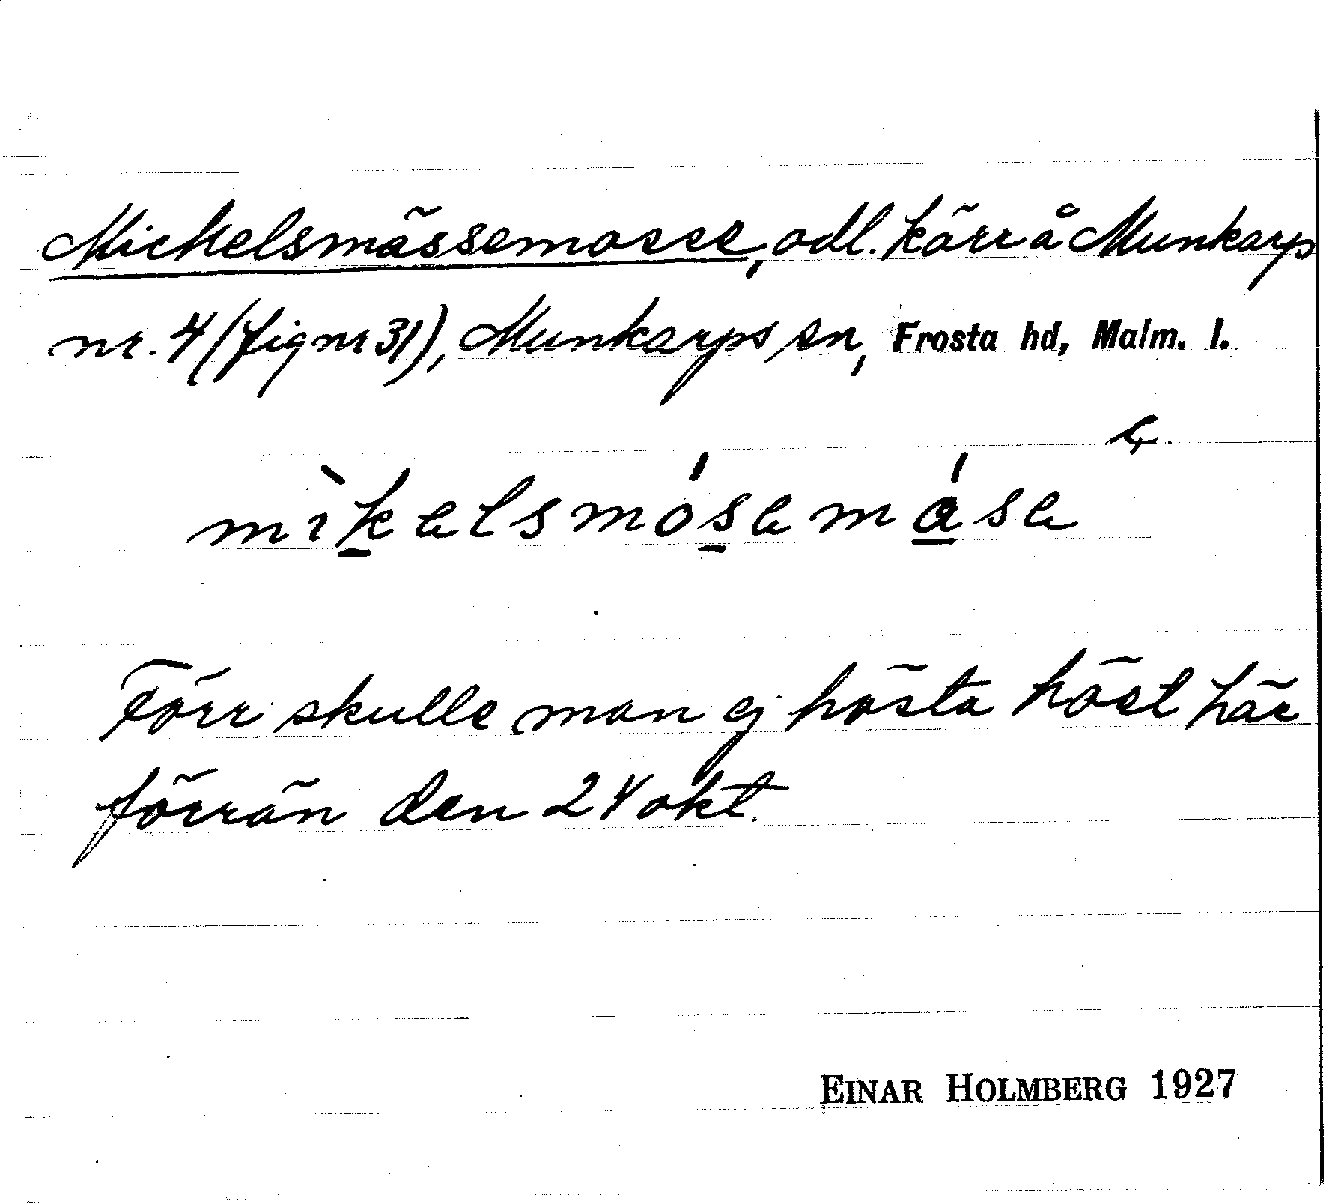 Mickelsmässemosse, odl. kärr å Munkarp
nr. 4 (fig nr 31), Munkarps sn, Frosta hd, Malm. l.
mìkalsmósamása
Förr skulle man ej hösta höst här
förrän den 24 okt.
EINAR HOLMBERG 1927